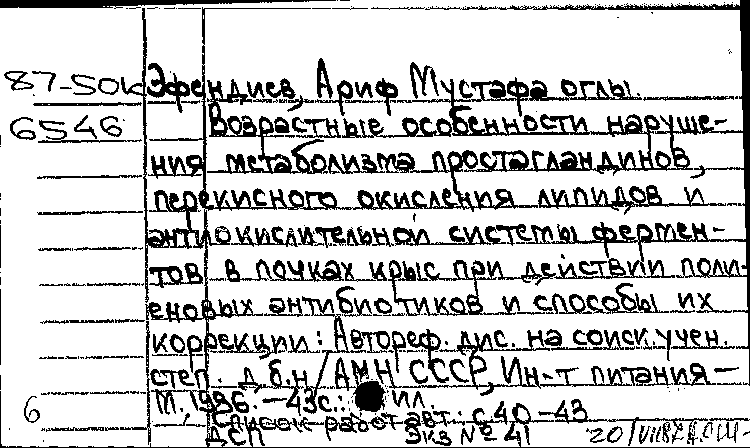 87-50к Эфендиев, Ариф Мустафа оглы.
6546 Возрастные особенности наруше-
ния метаболизма простагландинов,
перекисного окисления липидов и
антиокислительной системы фермен-
тов в почках крыс при действии поли-
еновых антибиотиков и способы их
коррекции: Автореф. дис. на соиск. учен.
степ. д.б.н/АМН СССР, Ин-т питания-
М., 1986.-43с.: ил.
6 Список работ авт.: с.40-43
ДСП Экз № 41 20/VII87